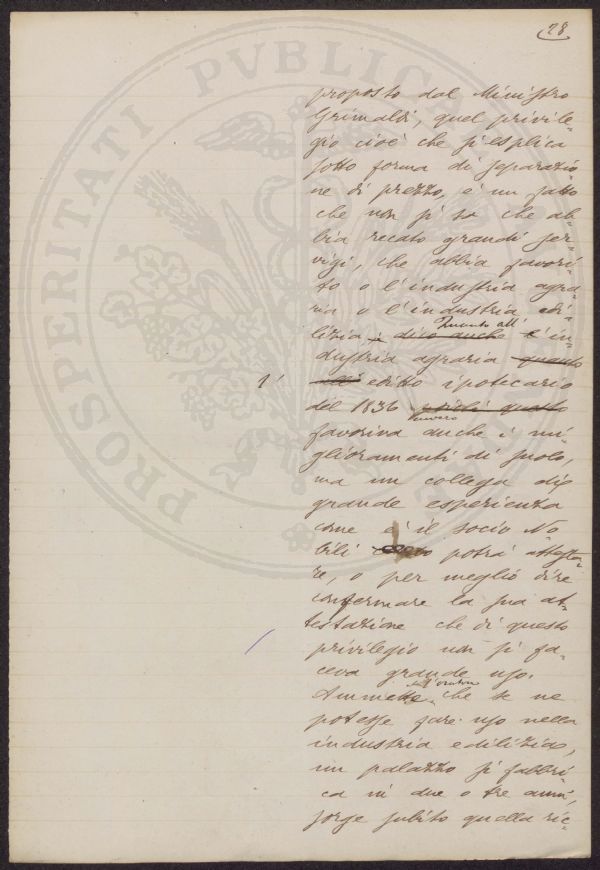 28
PROSPERITATI PVBLICAE
proposto dal Ministro
Grimaldi, quel privile-
gio cioè che si esplica
sotto forma di separazio-
ne di prezzo, è un fatto
che non si sa che ab-
bia recato grandi ser-
vigi, che abbia favori-
to o l'industria agra-
ria o l'industria edi-
lizia; dico anche l'in-
Quanto all'
dustria agraria quanto
l' all' editto ipotecario
del 1836 poichè questo
favoriva anche i mi-
glioramenti di suolo,
ma un collega di
grande esperienza
come è il socio No-
bili potrà attesta-
re, o per meglio dire
confermare la sua at-
testazione che di questo
privilegio non si fa-
ceva grande uso.
l'oratore
Ammette che se ne
potesse fare uso nella
industria edilizia,
un palazzo si fabbri-
ca in due o tre anni,
sorge subito quella ric-